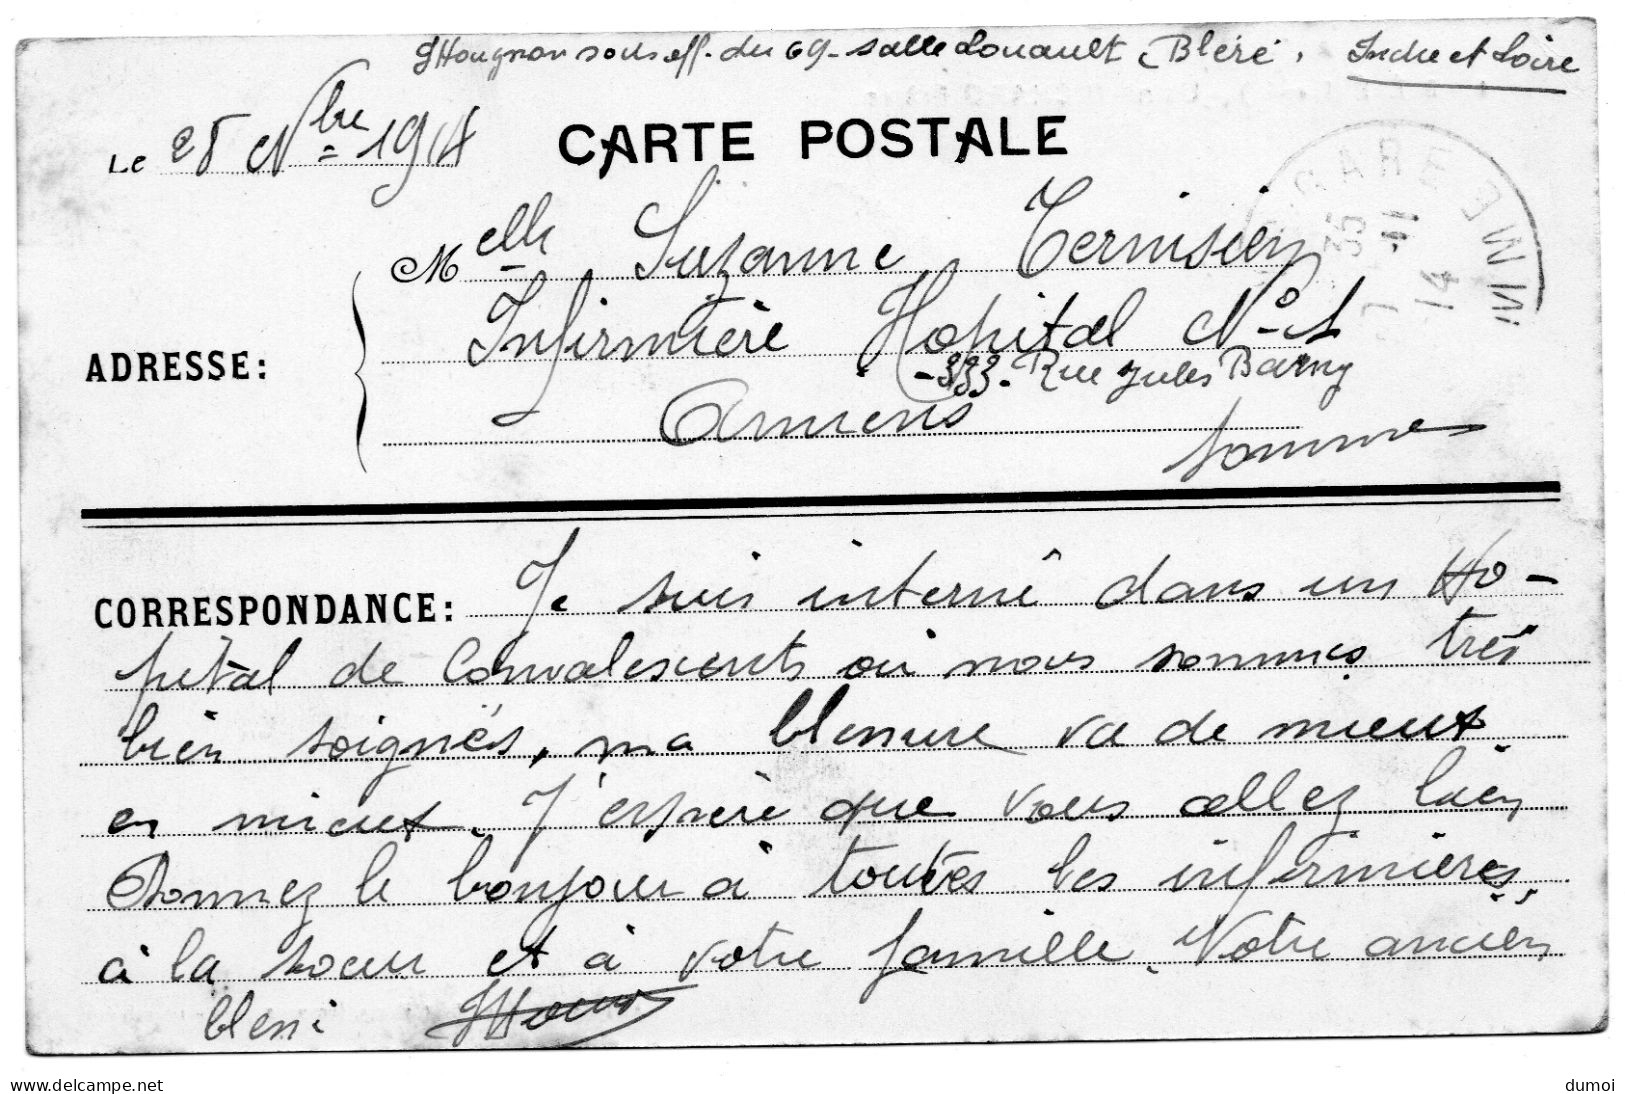 sous eff. du 69 - salle Louault, Bléré, Indre et Loire
Le 25 Nbre 1914 CARTE POSTALE
Melle Suzanne Ternisien
Infirmière Hopital No 1
ADRESSE:
- 333 - Rue Jules Barny
Amiens
Somme
CORRESPONDANCE: Je suis interné dans un Ho-
pital de Convalescents ou nous sommes très
bien soignés, ma blessure va de mieux
en mieux. J'espère que vous allez bien
Donnez le bonjour à toutes les infirmières,
à la soeur et à votre famille. Votre ancien
blessé
dumoi